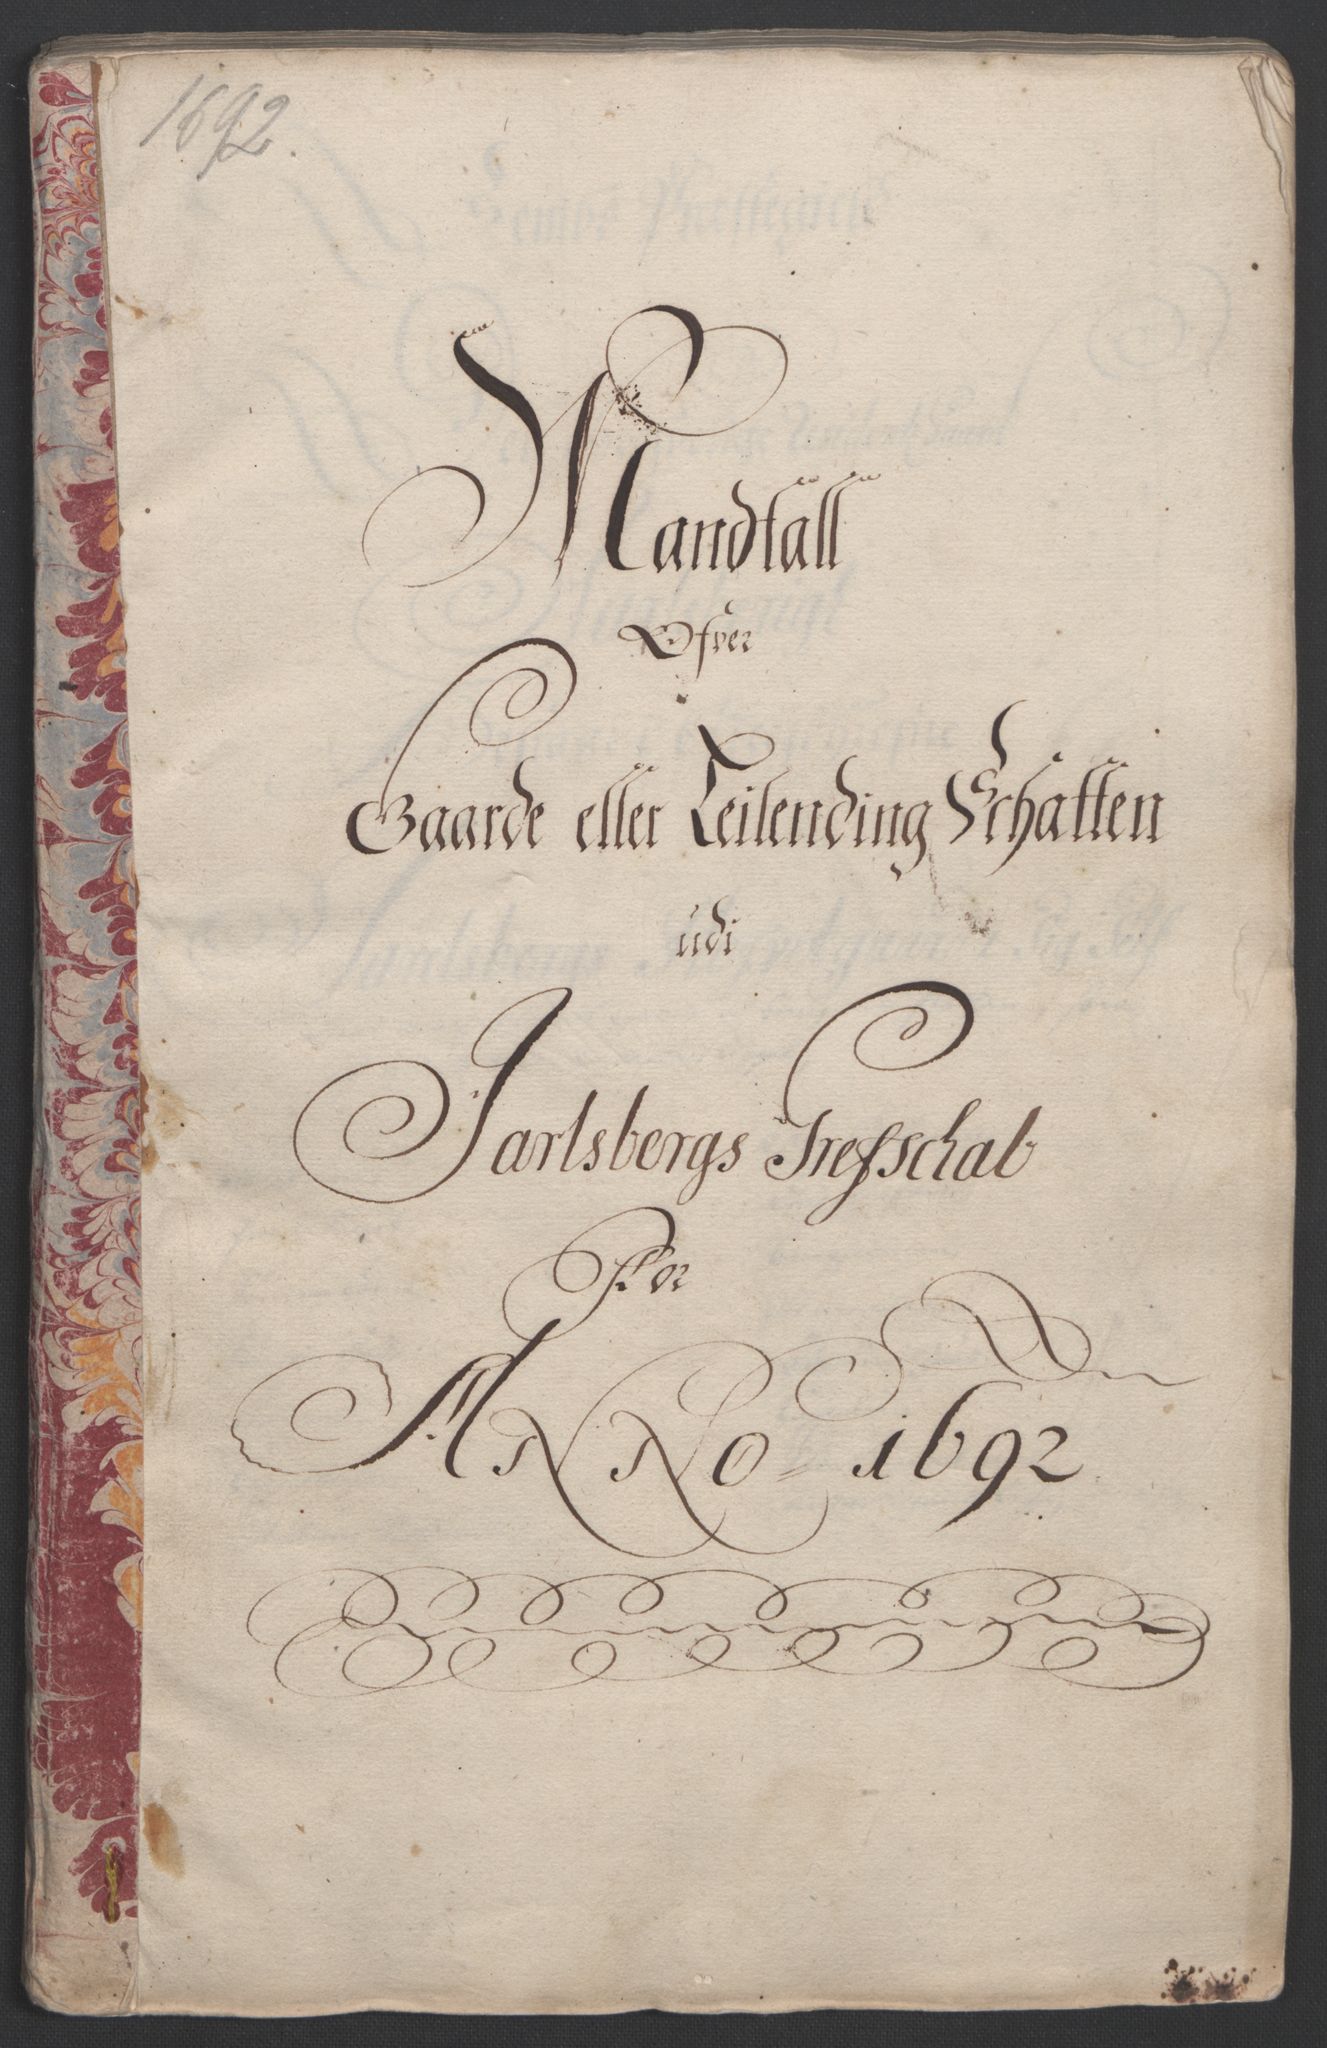 1692.
Mandtall
Ofver
Gaarde eller Leilending Schatten
udi
Jarlsbergs Grefschab
For
ANNO 1692